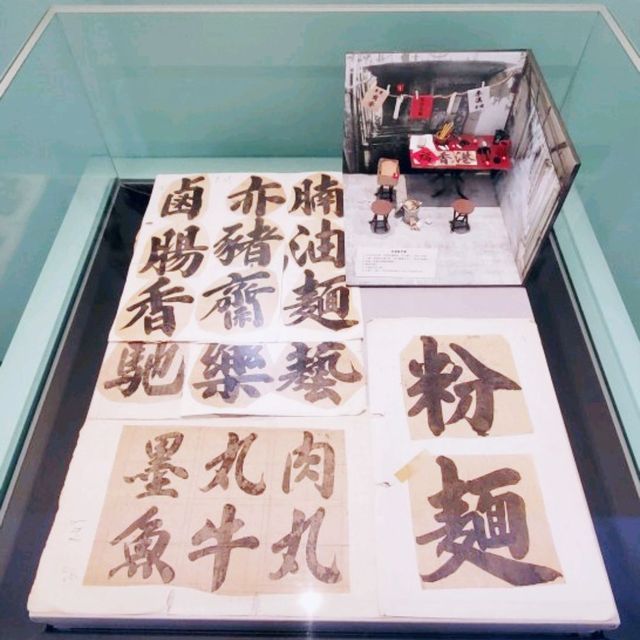 腩油麵
亦豬齋
鹵腸香
藝
樂
馳
肉丸
丸牛
墨魚
粉麵